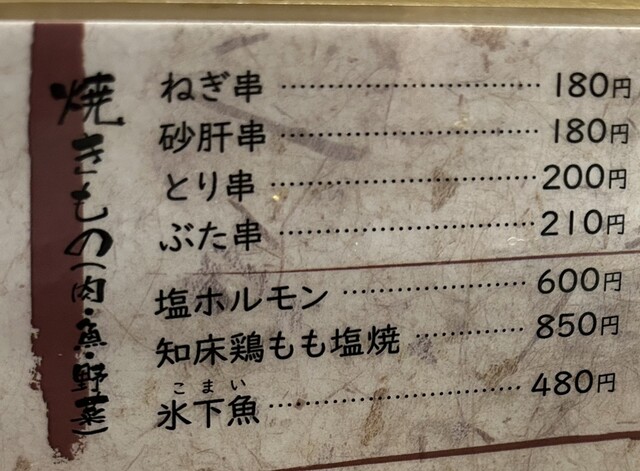 焼きもの(肉・魚・野菜)
ねぎ串 180円
砂肝串 180円
とり串 200円
ぶた串 210円
塩ホルモン 600円
知床鶏もも塩焼 850円
こまい
氷下魚 480円